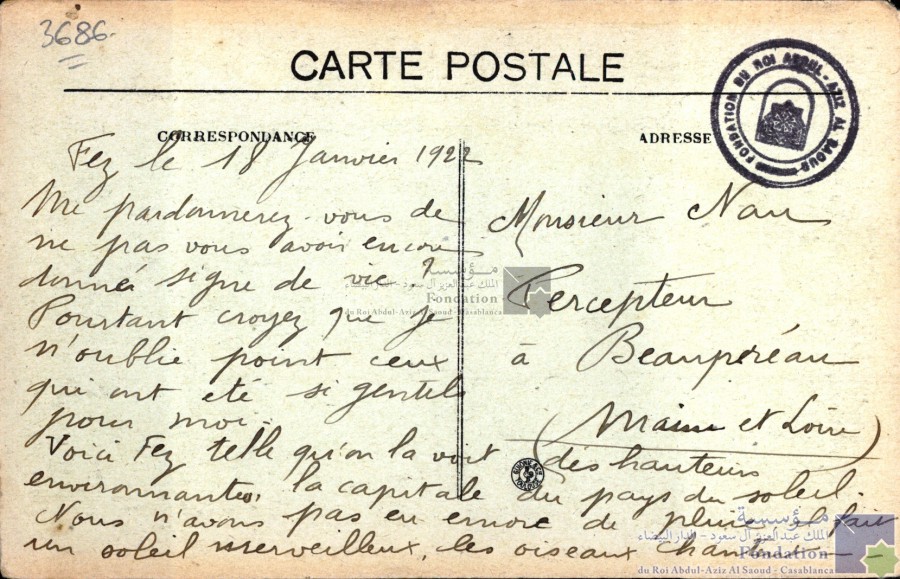 3686.
CARTE POSTALE
FONDATION DU ROI ABDUL-AZIZ AL SAOUD
CORRESPONDANCE
ADRESSE
Fez le 18 Janvier 1922
Me pardonnerez-vous de
ne pas vous avoir encore
donné signe de vie ?
Pourtant croyez que je
n'oublie point ceux
qui ont été si gentils
pour moi.
Voici Fez telle qu'on la voit des hauteurs
environnantes, la capitale du pays du soleil.
Nous n'avons pas eu encore de pluie, il fait
un soleil merveilleux, les oiseaux chantent
Monsieur Nau
Percepteur
à Beaupréau
(Maine et Loire)
مؤسسة
الملك عبدالعزيز آل سعود - الدار البيضاء
Fondation
du Roi Abdul-Aziz Al Saoud - Casablanca
مؤسسة
الملك عبدالعزيز آل سعود - الدار البيضاء
Fondation
du Roi Abdul-Aziz Al Saoud - Casablanca